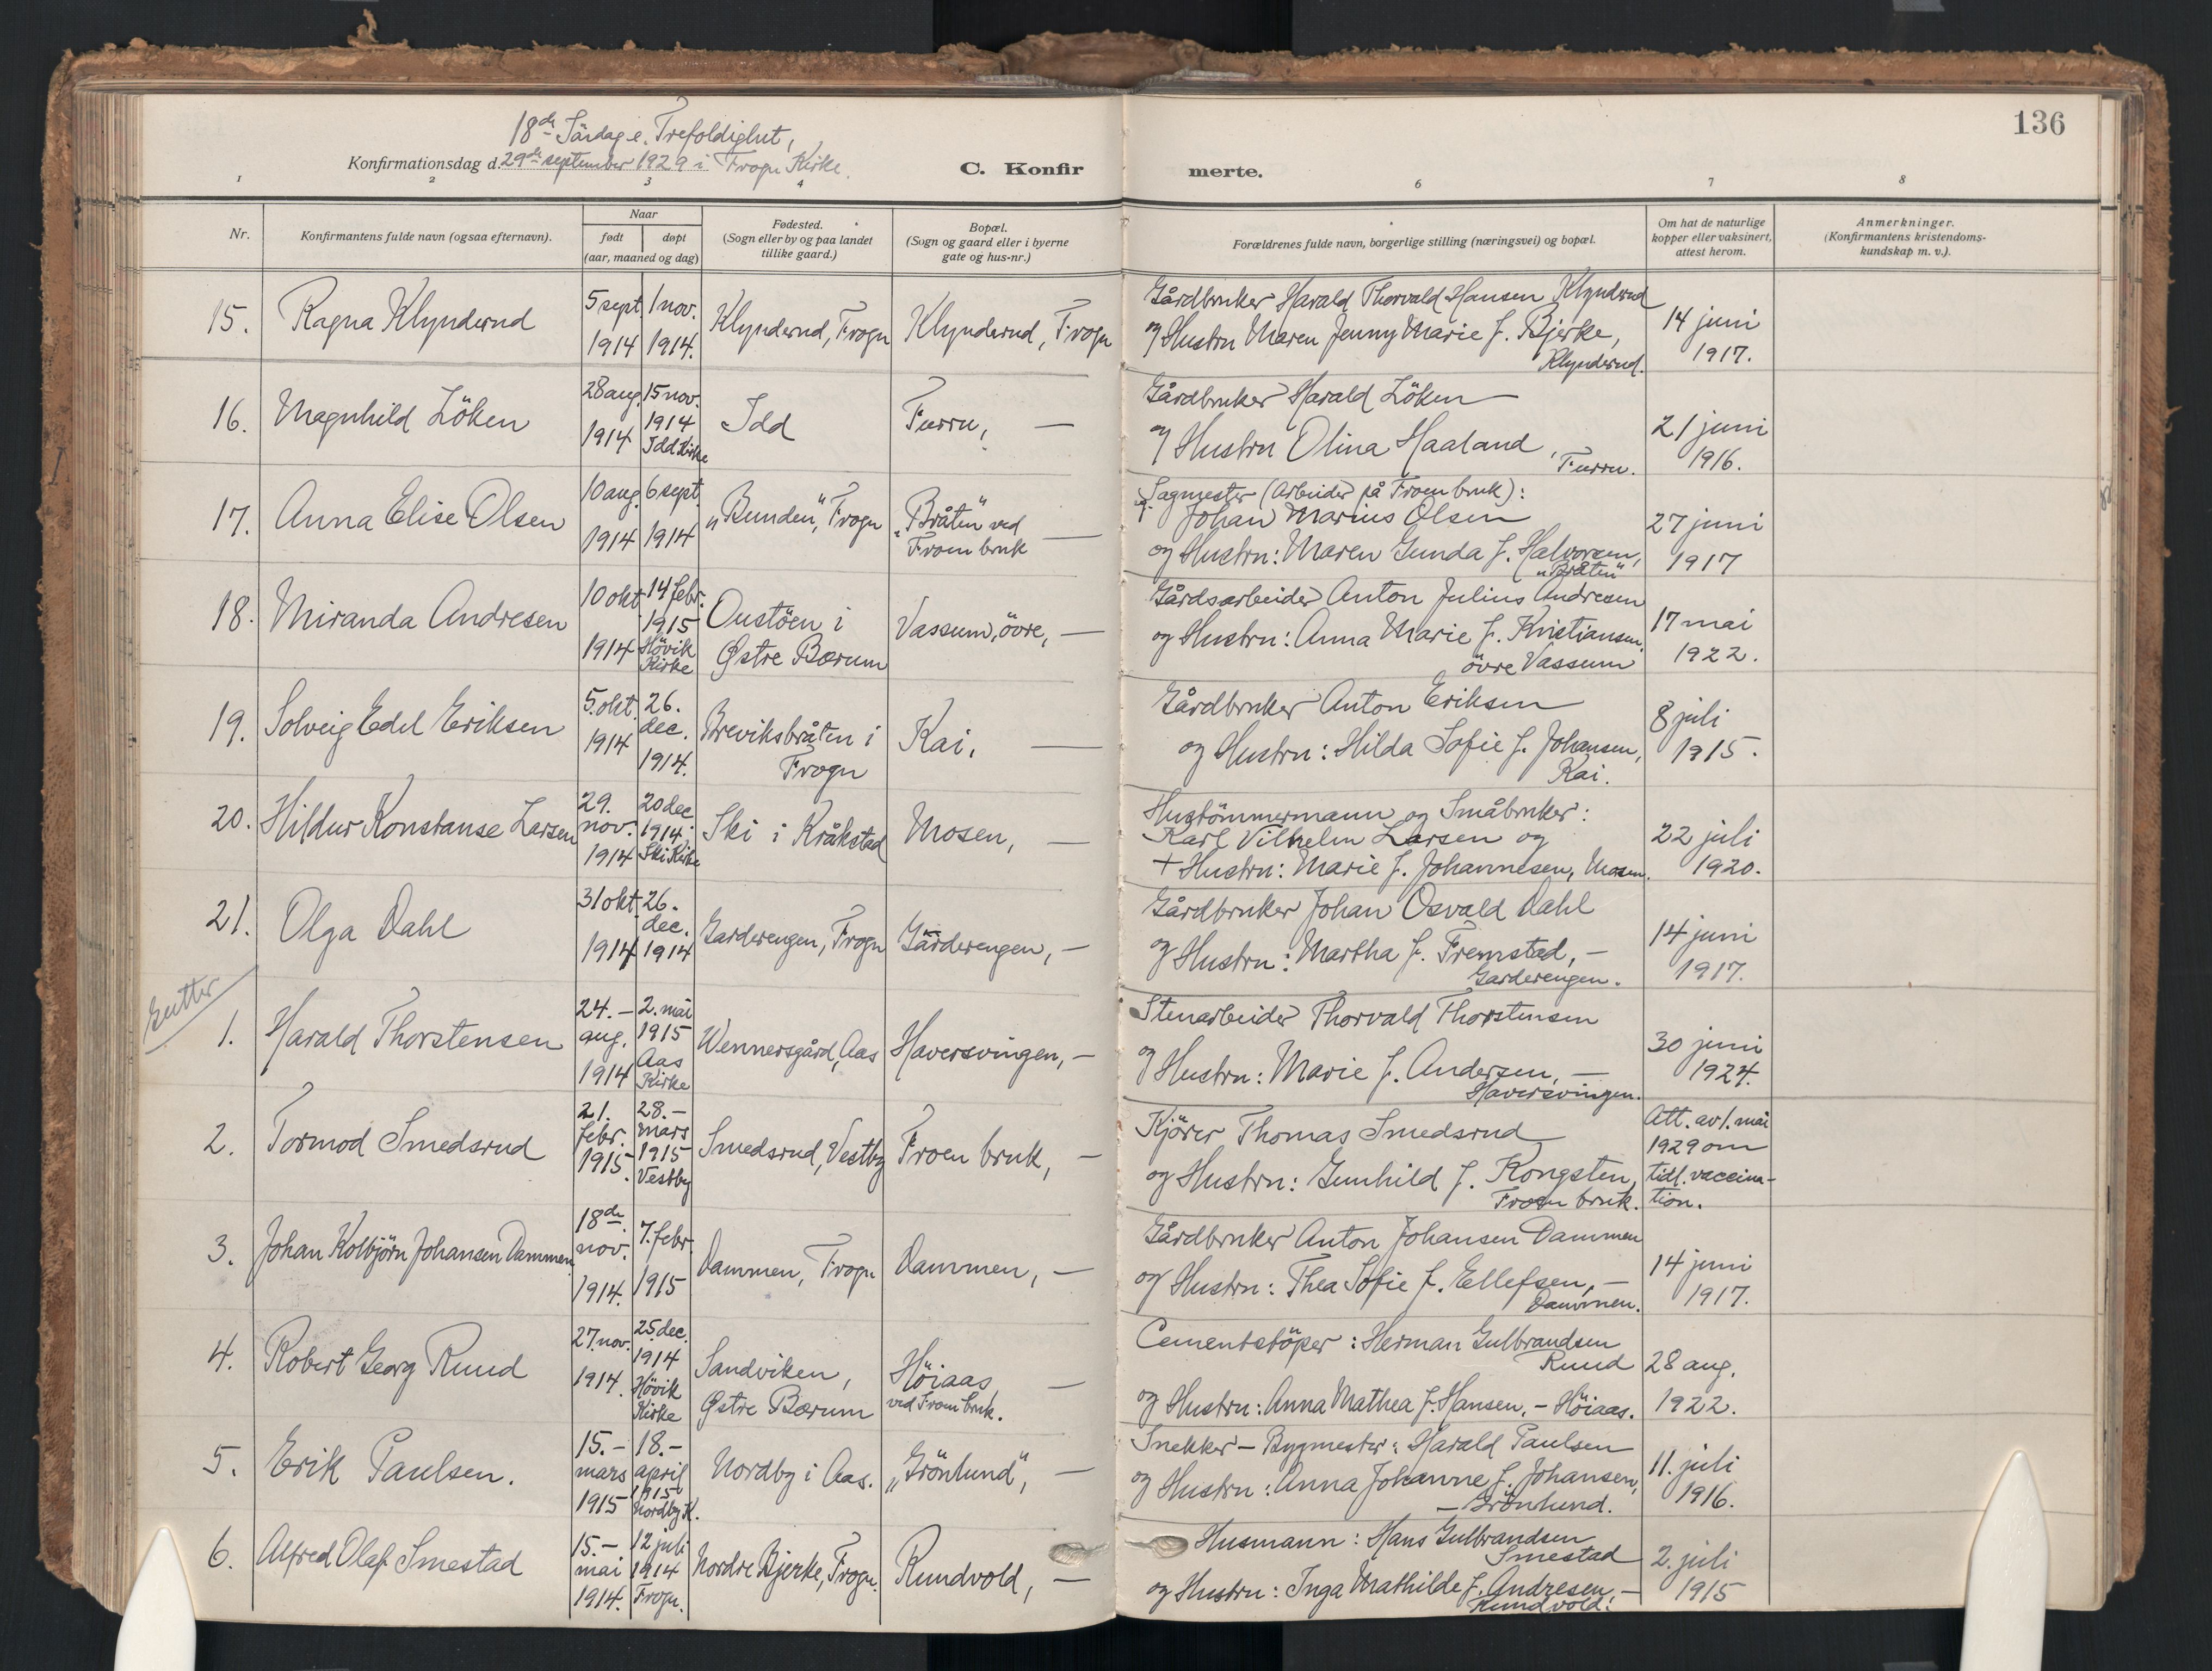 136
18de Søndag e. Trefoldighet,
Konfirmationsdag d. 29de september 1929 i Frogn Kirke.
C. Konfirmerte.
1 2 3 4 6 7 8
Nr.
Konfirmantens fulde navn (ogsaa efternavn).
Naar
født døpt
(aar, maaned og dag)
Fødested.
(Sogn eller by og paa landet
tillike gaard.)
Bopæl.
(Sogn og gaard eller i byerne
gate og hus-nr.)
Forældrenes fulde navn, borgerlige stilling (næringsvei) og bopæl.
Om hat de naturlige
kopper eller vaksinert,
attest herom.
Anmerkninger.
(Konfirmantens kristendoms-
kundskap m. v.).
15. Ragna Klynderud
5 sept. 1914
1 nov. 1914.
Klynderud, Frogn
Klynderud, Frogn
Gårdbruker Harald Thorvald Hansen Klynderud
og Hustru Maren Jenny Marie f. Bjerke,
Klynderud.
14 juni
1917.
16. Magnhild Löken
28 aug. 1914
15 nov.
1914
Idd Kirke
Idd
Furru, —
Gårdbruker Harald Löken —
og Hustru Olina Haaland,
Furru.
21 juni
1916.
17. Anna Elise Olsen
10 aug. 1914
6 sept. 1914
„Bunden", Frogn
„Bråten" ved
Froen bruk —
Sagmester (Arbeider på Froen bruk):
Johan Marius Olsen
og Hustru: Maren Gunda f. Halvorsen,
„Bråten"
27 juni
1917
18. Miranda Andresen
10 okt 1914
14 febr.
1915
Hövik
Kirke
Oustöen i
Østre Bærum
Vassum, övre, —
Gårdsarbeider Anton Julius Andresen
og Hustru: Anna Marie f. Kristiansen,
övre Vassum
17 mai
1922.
19. Solveig Edel Eriksen
5. okt. 1914
26.
dec.
1914.
Breviksbråten i
Frogn
Kai, —
Gårdbruker Anton Eriksen
og Hustru: Hilda Sofie f. Johansen,
Kai.
8 juli
1915.
20. Hildur Konstanse Larsen
29.
nov.
1914
20 dec
1914.
Ski Kirke
Ski i Kråkstad
Mosen, —
Hustömmermann og Småbruker:
Karl Vilhelm Larsen og
+ Hustru: Marie f. Johannesen, Mosen.
22 juli
1920.
21. Olga Dahl
31 okt. 1914
26.
dec.
1914
Garderengen, Frogn
Gärderengen, —
Gårdbruker Johan Osvald Dahl
og Hustru: Martha f. Fremstad, —
Garderengen.
14 juni
1917.
Gutter
1. Harald Thorstensen
24. —
aug.
1914
2. mai
1915
Aas
Kirke
Wennersgård, Aas
Haversvingen, —
Stenarbeider Thorvald Thorstensen
og Hustru: Marie f. Andersen, —
Haversvingen.
30 juni
1924.
2. Tormod Smedsrud
21.
febr.
1915.
28. —
mars
1915
Vestby
Smedsrud, Vestby
Froen bruk, —
Kjörer Thomas Smedsrud
og Hustru: Gunhild f. Kongsten,
Froen bruk.
Att. av 1. mai
1929 om
tidl. vaccina-
tion.
3. Johan Kolbjörn Johansen Dammen
18de
nov.
1914.
7. febr.
1915
Dammen, Frogn
Dammen, —
Gårdbruker Anton Johansen Dammen
og Hustru: Thea Sofie f. Ellefsen, —
Dammen.
14 juni
1917.
4. Robert Georg Ruud
27 nov. 1914.
25 dec.
1914
Hövik
Kirke
Sandviken,
Østre Bærum
Höiaas, —
ved Froen bruk.
Cementstöper: Herman Gulbrandsen
Ruud
og Hustru: Anna Mathea f. Hansen, — Höiaas.
28 aug.
1922.
5. Erik Paulsen.
15. —
mars
1915
18. —
april
1915
Nordby K.
Nordby i Aas.
„Grönlund", —
Snekker — Bygmester: Harald Paulsen
og Hustru: Anna Johanne f. Johansen,
— Grönlund.
11. juli
1916.
6. Alfred Olaf Smestad
15. —
mai
1914.
12 juli
1914
Frogn.
Nordre Bjerke, Frogn.
Rundvold, —
Husmann: Hans Gulbrandsen
Smestad
og Hustru: Inga Mathilde f. Andresen, —
Rundvold.
2. juli
1915